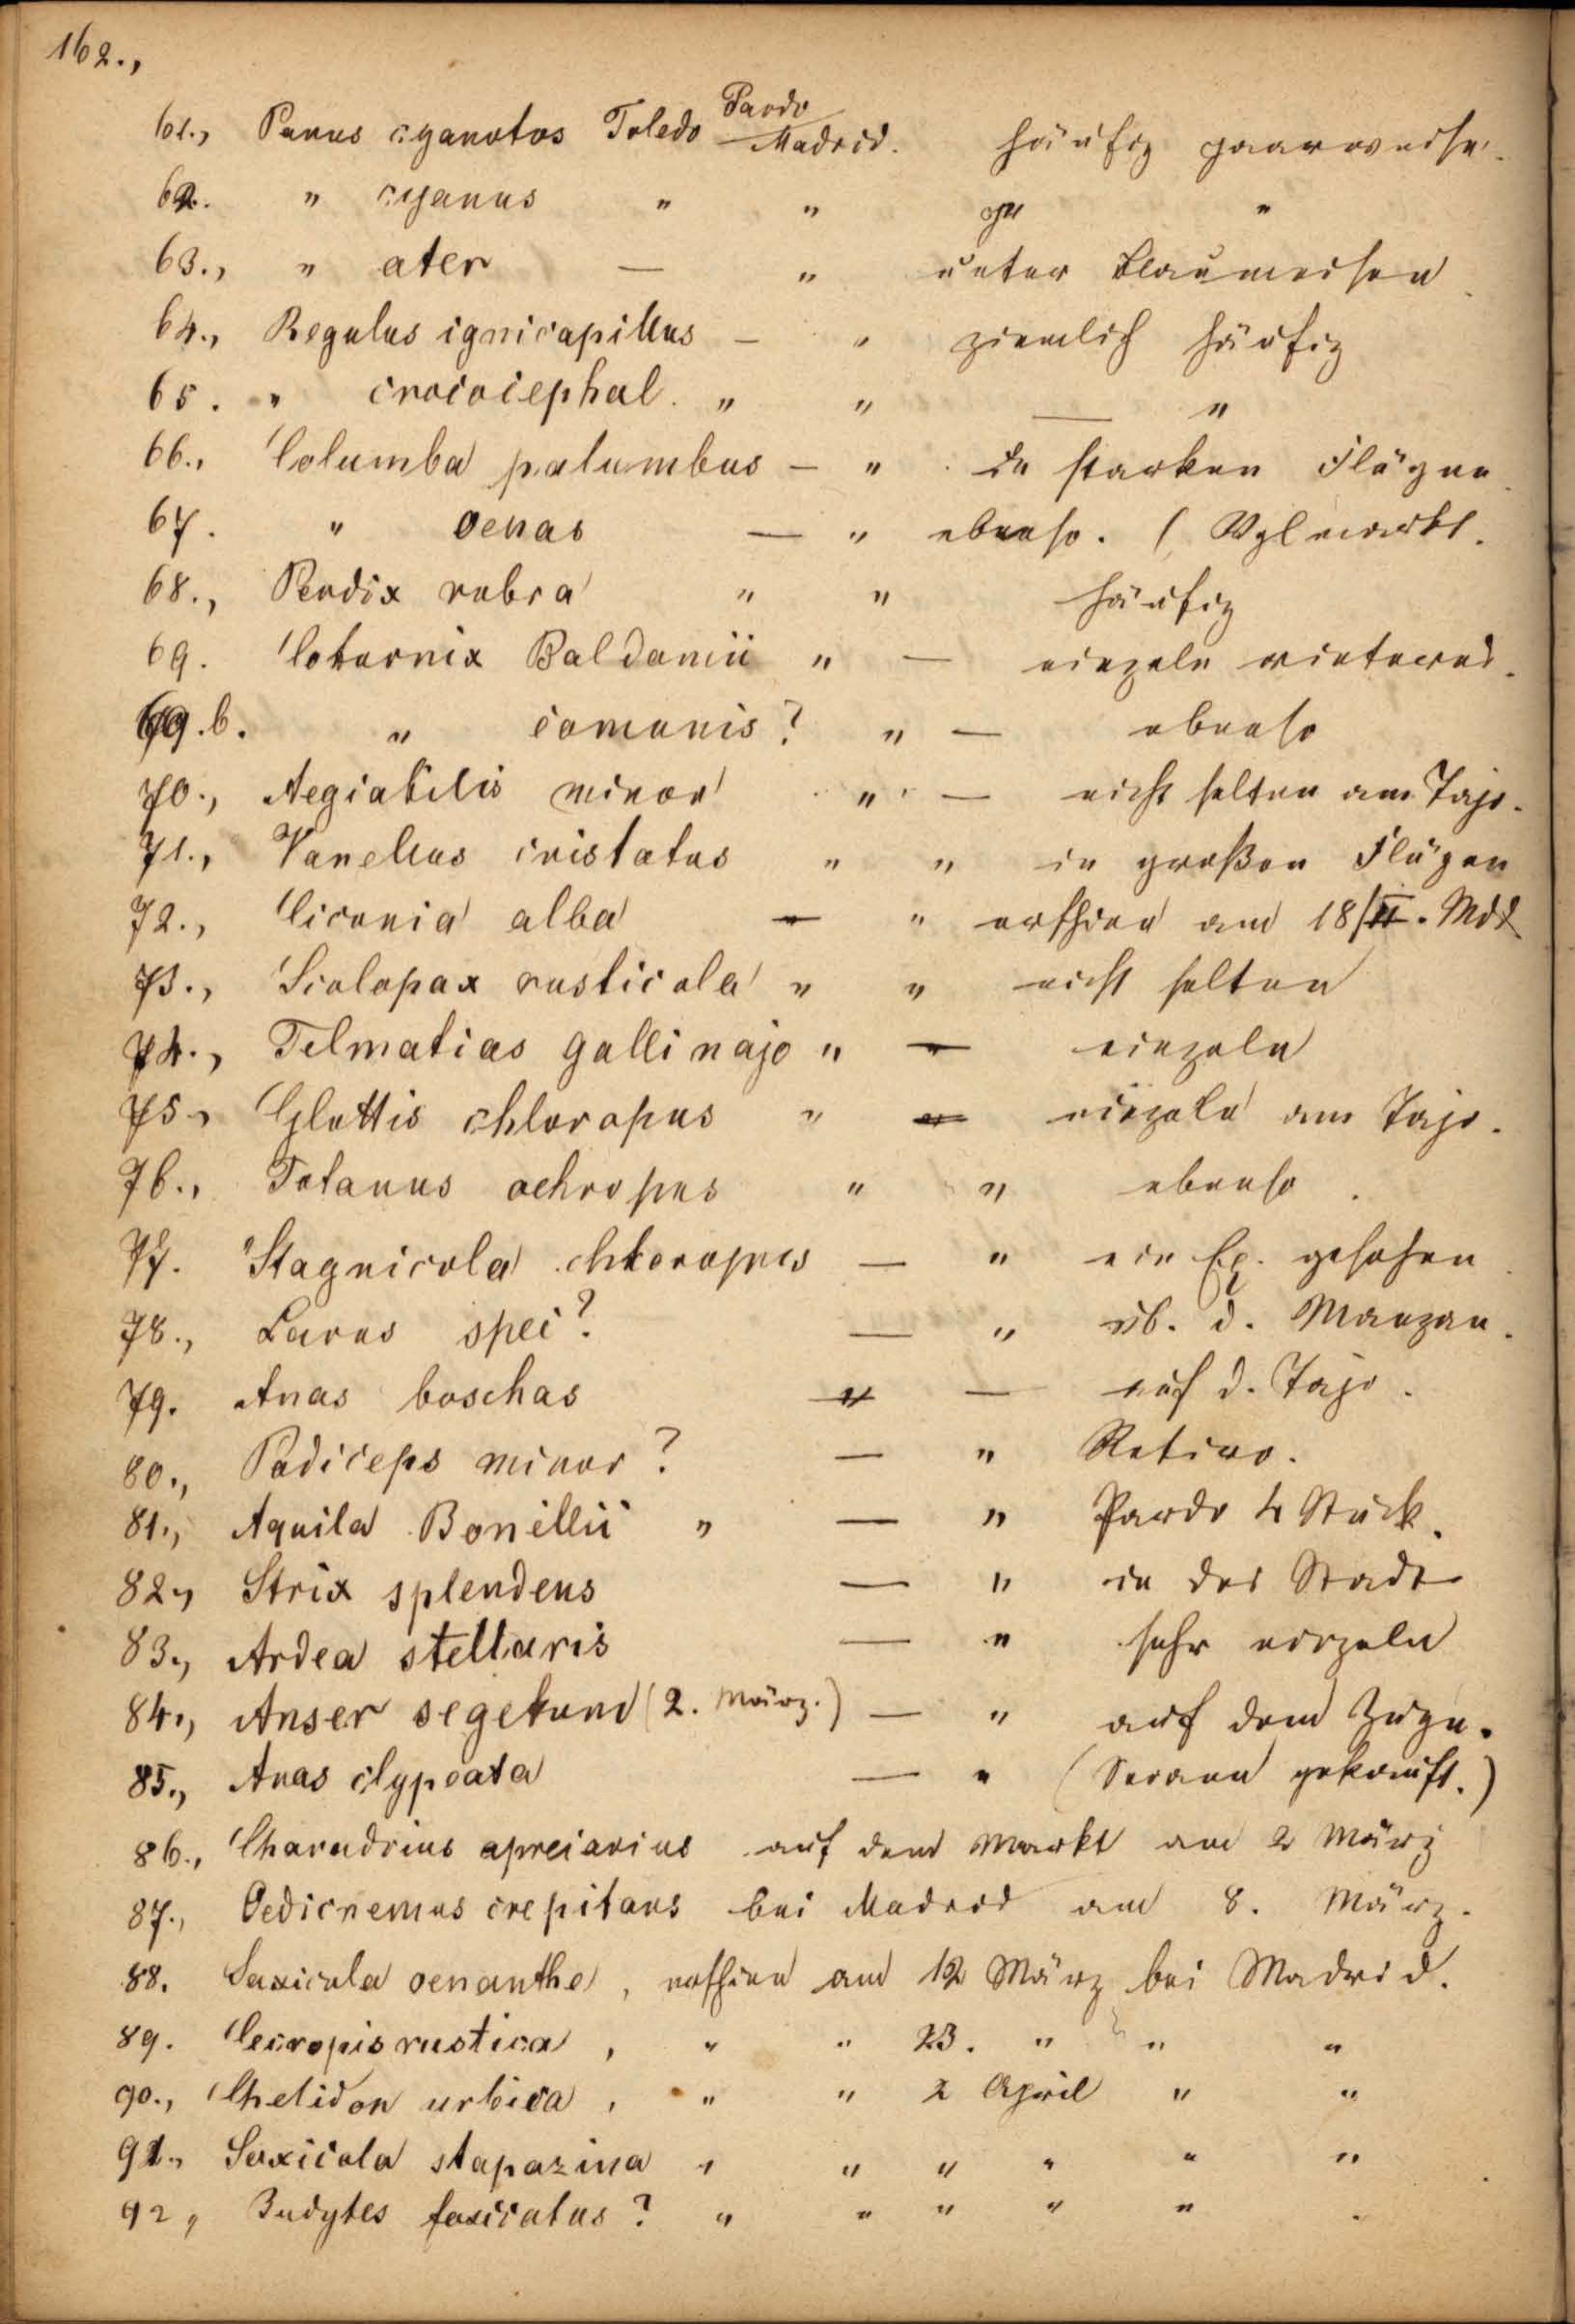 162.,
Pardo
61., Parus cyanotos Toledo Madrid. häufig paarweise.
62. " cyanus " " "
63., " ater — " unter Blaumeisen
64., Regulus ignicapillus — " ziemlich häufig
65. " crococephal. " " — "
66., Columba palumbus — " In starken Flügen
67. " oenas — " ebenso. ( Vglmarkt.
68., Perdix rubra " " häufig
69. Coturnix Baldamii " — einzeln winternd.
69.b. " comunis? " — ebenso
70., Aegialitis minor " — nicht selten am Tajo.
71., Vanellus cristatus " " in großen Flügen
72., Ciconia alba — " erschien am 18/II. Mdd
73., Scolopax rusticola " " nicht selten
74., Telmatias gallinago " — einzeln
75., Glottis chloropus " — einzeln am Tajo.
76., Totanus ochropus " " ebenso.
77. Stagnicola chloropus — " ein Ex. gesehen
78., Larus spec? — " üb. d. Manzan.
79. Anas boschas " — auf d. Tajo.
80., Podiceps minor? — " Retiro.
81., Aquila Bonellii " — " Pardo 4 Stück.
82., Strix splendens — " in der Stadt
83., Ardea stellaris — " sehr einzeln
84., Anser segetum (2. März.) — " auf dem Zuge.
85., Anas clypeata — " ( gekauft.)
86., Charadrius apreiarius auf dem Markt am 2 März
87., Oedicnemus crepitans bei Madrid am 8. März.
88. Saxicola oenanthe, erschien am 12 März bei Madrid.
89. Cecropis rustica, " " 23. " " "
90., Chelidon urbica, " " 2 April " "
91., Saxicola stapazina " " " " " "
92, Budytes fasciatus? " " " " "